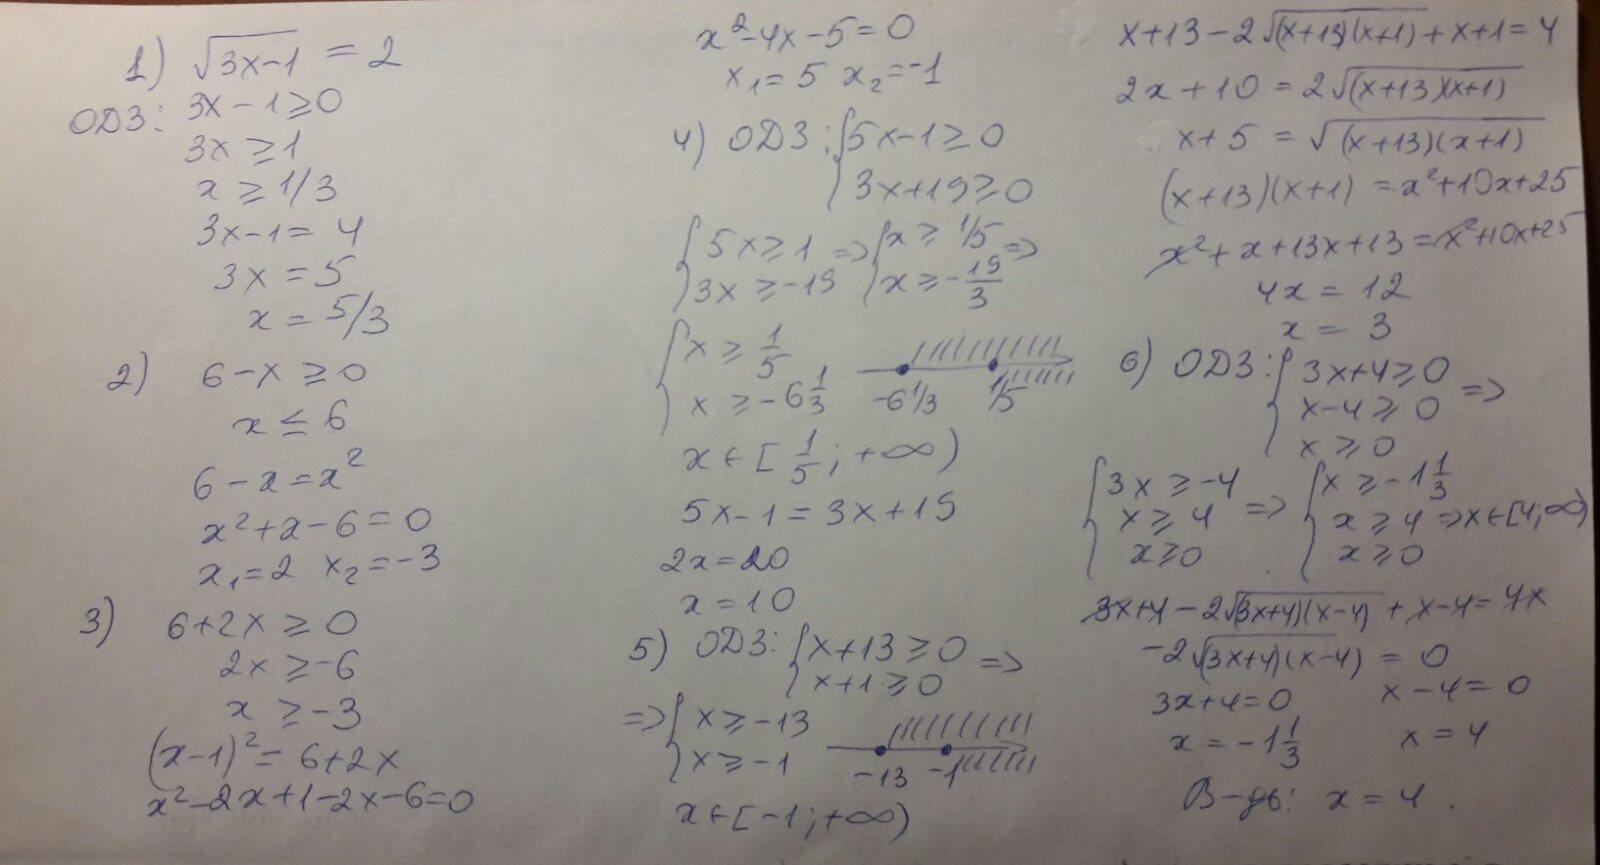 1) √3x-1 = 2
ОДЗ: 3x - 1 ≥ 0
3x ≥ 1
x ≥ 1/3
3x-1 = 4
3x = 5
x = 5/3
2) 6-x ≥ 0
x ≤ 6
6-x = x²
x²+x-6 = 0
x₁=2 x₂=-3
3) 6+2x ≥ 0
2x ≥ -6
x ≥ -3
(x-1)² = 6+2x
x²-2x+1-2x-6=0
x²-4x-5=0
x₁=5 x₂=-1
4) ОДЗ: { 5x-1 ≥ 0
3x+19 ≥ 0
{ 5x ≥ 1 => { x ≥ 1/5 =>
3x ≥ -19 x ≥ -19/3
{ x ≥ 1/5
x ≥ -6 1/3
-6 1/3 1/5
x ∈ [1/5; +∞)
5x-1 = 3x+19
2x = 20
x = 10
5) ОДЗ: { x+13 ≥ 0 =>
x+1 ≥ 0
=> { x ≥ -13
x ≥ -1
-13 -1
x ∈ [-1; +∞)
x+13-2√(x+13)(x+1) + x+1 = 4
2x+10 = 2√(x+13)(x+1)
x+5 = √(x+13)(x+1)
(x+13)(x+1) = x²+10x+25
x²+x+13x+13 = x²+10x+25
4x = 12
x = 3
6) ОДЗ: { 3x+4 ≥ 0 =>
x-4 ≥ 0
x ≥ 0
{ 3x ≥ -4 => { x ≥ -1 1/3
x ≥ 4 x ≥ 4 => x ∈ [4; ∞)
x ≥ 0 x ≥ 0
3x+4 - 2√(3x+4)(x-4) + x-4 = 4x
-2√(3x+4)(x-4) = 0
3x+4=0 x-4=0
x = -1 1/3 x = 4
В-дь: x = 4.